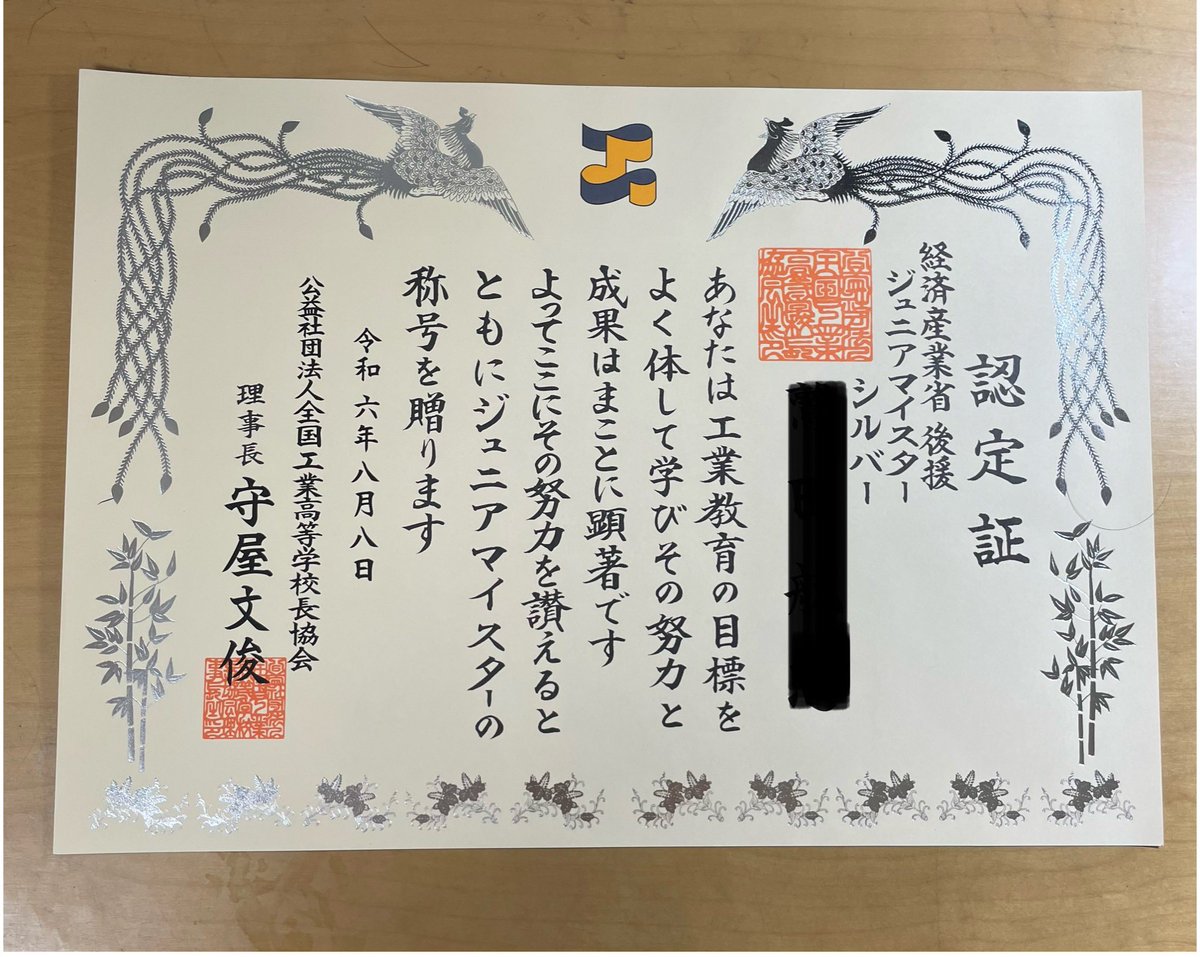 認定証
経済産業省 後援
ジュニアマイスター
シルバー
あなたは工業教育の目標を
よく体して学びその努力と
成果はまことに顕著です
よってここにその努力を讃えると
ともにジュニアマイスターの
称号を贈ります
令和六年八月八日
公益社団法人全国工業高等学校長協会
理事長 守屋文俊